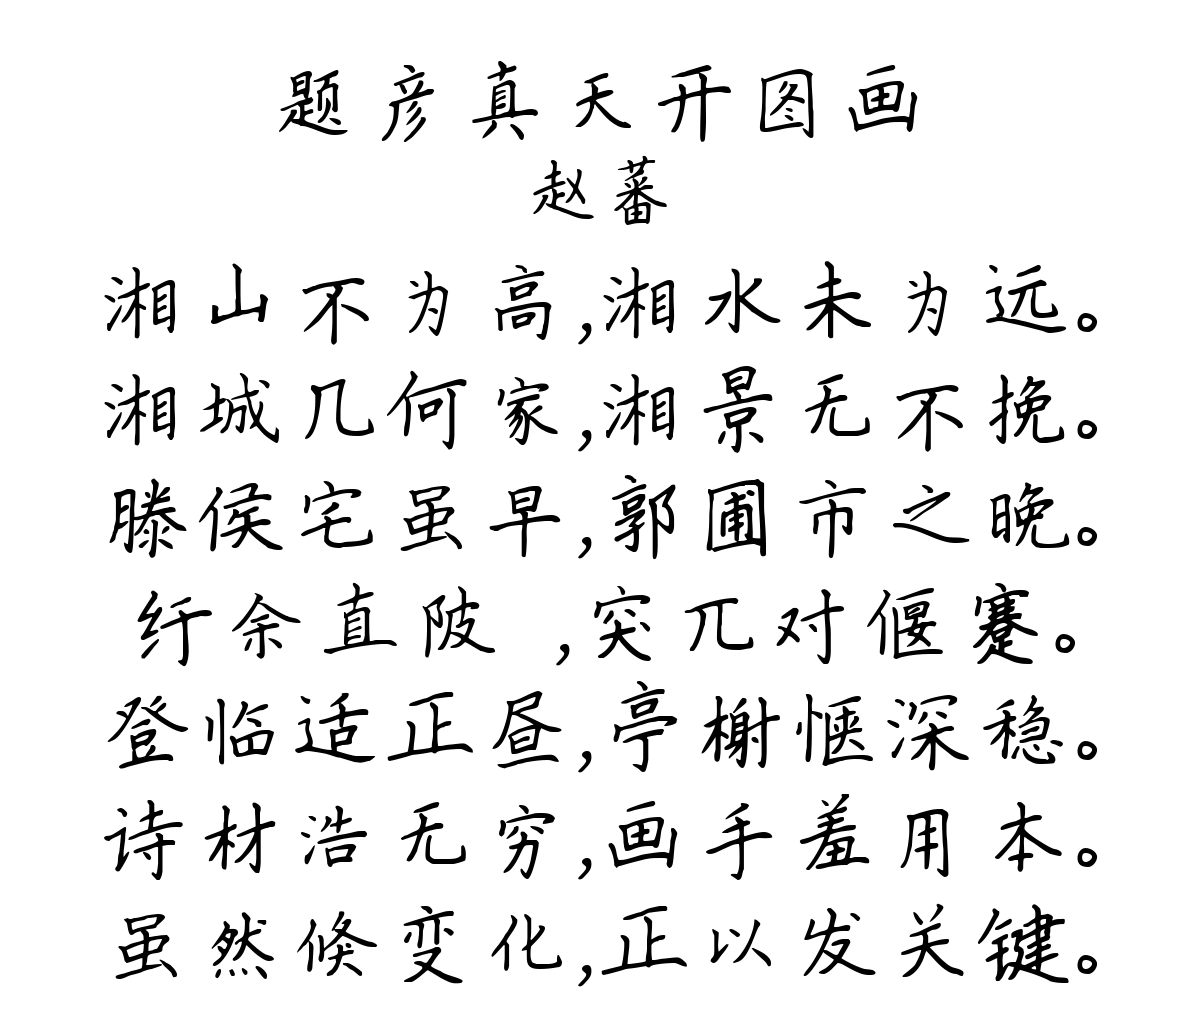 题彦真天开图画
赵蕃
湘山不为高,湘水未为远。
湘城几何家,湘景无不挽。
滕侯宅虽早,郭圃市之晚。
纡余直陂 ,突兀对偃蹇。
登临适正昼,亭榭惬深稳。
诗材浩无穷,画手羞用本。
虽然倏变化,正以发关键。